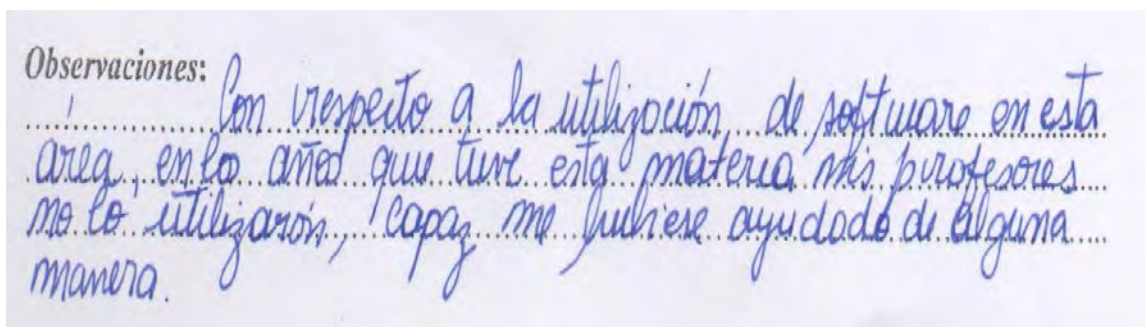 Observaciones:
Con respecto a la utilización de software en esta
area, en los años que tuve esta materia mis profesores
no lo utilizarón, capaz me hubiese ayudado de alguna
manera.